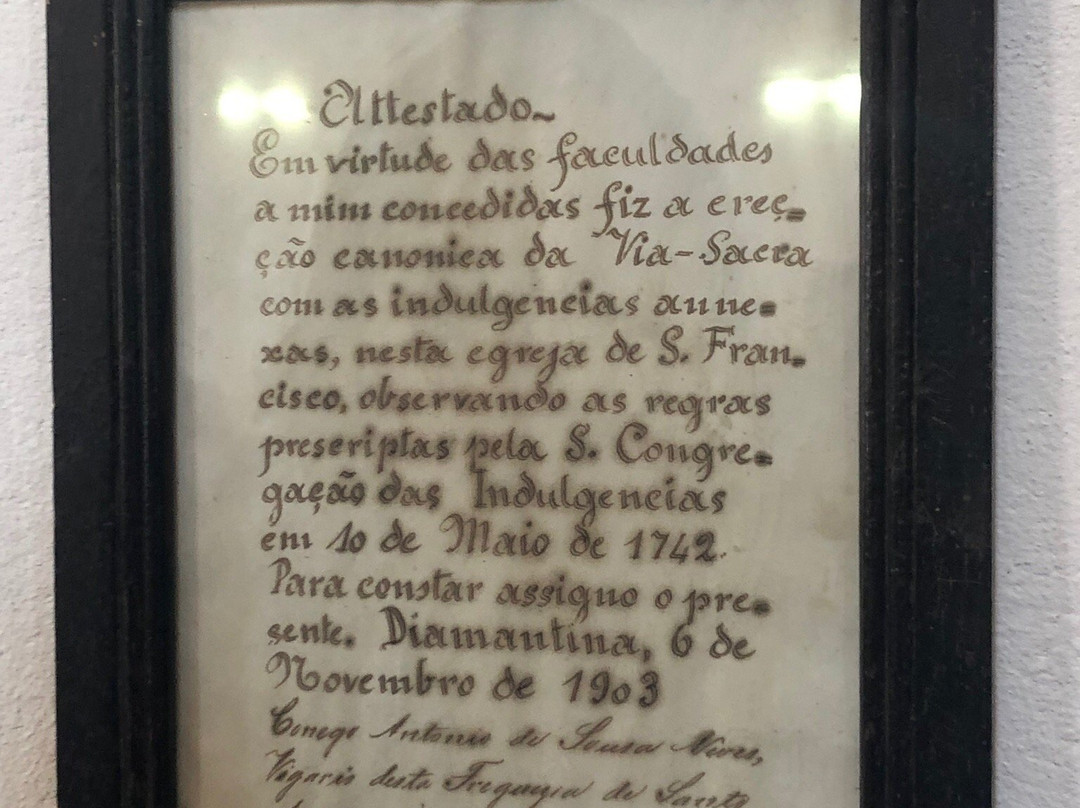 Attestado~
Em virtude das faculdades
a mim concedidas fiz a ereç=
ção canonica da Via-Sacra
com as indulgencias anne=
xas, nesta egreja de S. Fran=
cisco, observando as regras
prescriptas pela S. Congre=
gação das Indulgencias
em 10 de Maio de 1742.
Para constar assigno o pre=
sente. Diamantina, 6 de
Novembro de 1903
Conego Antonio de Sousa Neves,
Vigario desta Freguezia de Santo